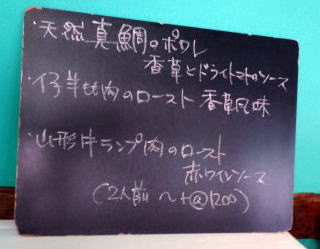 ・天然真鯛のポワレ
香草とドライトマトのソース
・仔羊もも肉のロースト 香草風味
・山形牛ランプ肉のロースト
赤ワインソース
(2人前 〜 +@1200)